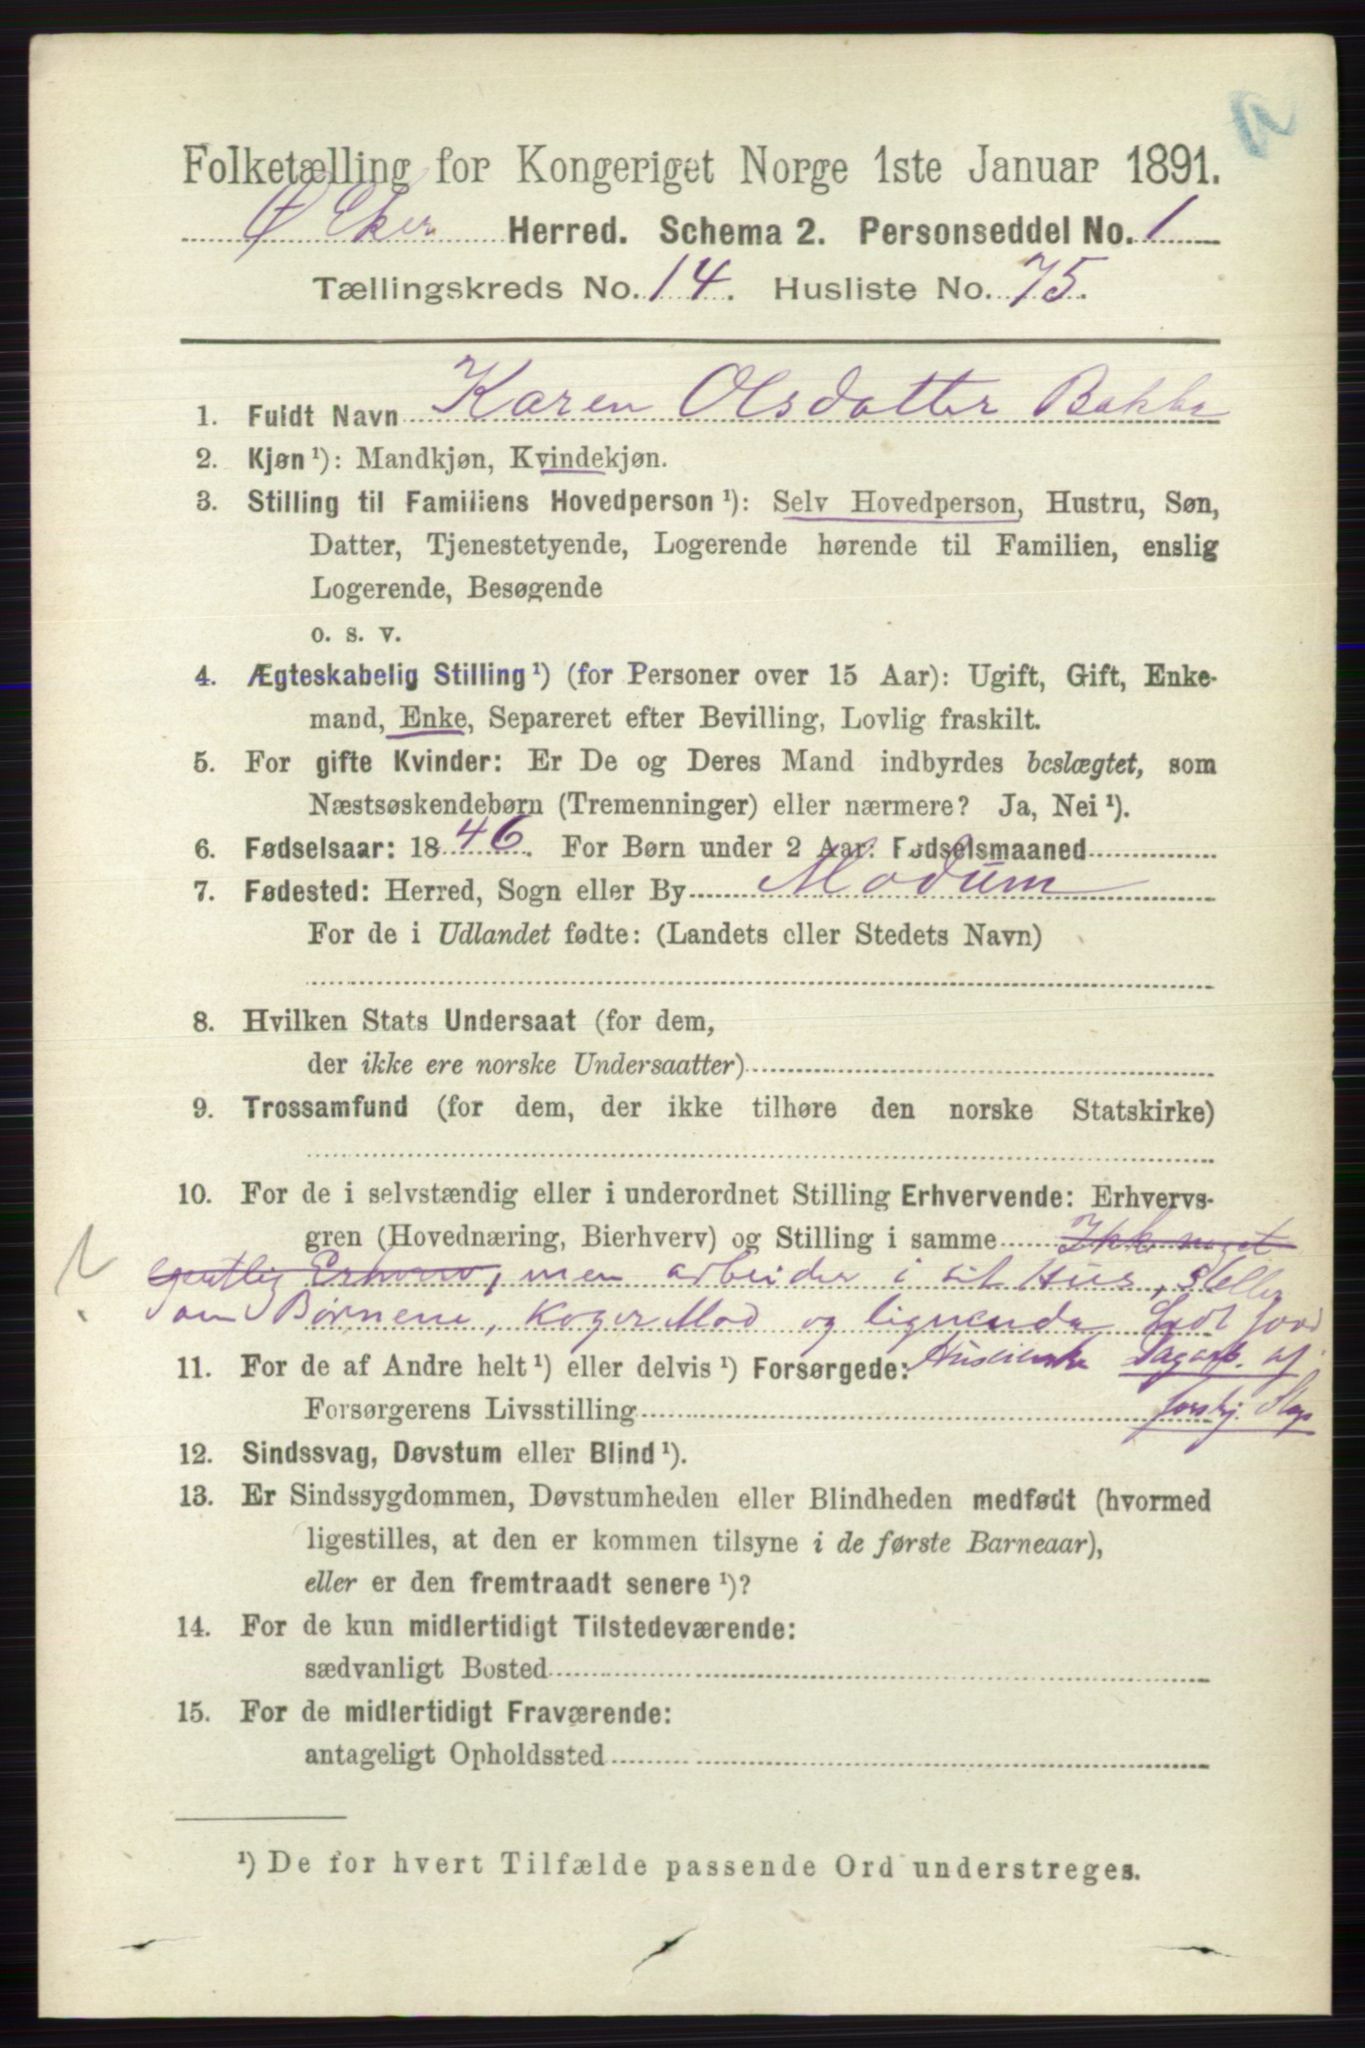 Folketælling for Kongeriget Norge 1ste Januar 1891.
Ø Eker Herred. Schema 2. Personseddel No. 1
Tællingskreds No. 14. Husliste No. 75.
1. Fuldt Navn Karen Olsdatter Bakke
2. Kjøn ¹): Mandkjøn, Kvindekjøn.
3. Stilling til Familiens Hovedperson ¹): Selv Hovedperson, Hustru, Søn,
Datter, Tjenestetyende, Logerende hørende til Familien, enslig
Logerende, Besøgende
o. s. v.
4. Ægteskabelig Stilling ¹) (for Personer over 15 Aar): Ugift, Gift, Enke-
mand, Enke, Separeret efter Bevilling, Lovlig fraskilt.
5. For gifte Kvinder: Er De og Deres Mand indbyrdes beslægtet, som
Næstsøskendebørn (Tremenninger) eller nærmere? Ja, Nei ¹).
6. Fødselsaar: 1846. For Børn under 2 Aar: Fødselsmaaned
7. Fødested: Herred, Sogn eller By Modum
For de i Udlandet fødte: (Landets eller Stedets Navn)
8. Hvilken Stats Undersaat (for dem,
der ikke ere norske Undersaatter)
9. Trossamfund (for dem, der ikke tilhøre den norske Statskirke)
10. For de i selvstændig eller i underordnet Stilling Erhvervende: Erhvervs-
gren (Hovednæring, Bierhverv) og Stilling i samme Ikke noget
egentlig Erhverv, men arbeider i sit Hus, steller
om Børnene, koger Mad og lignende
11. For de af Andre helt ¹) eller delvis ¹) Forsørgede: Dagarb. af
Forsørgerens Livsstilling forskj. Slags
12. Sindssvag, Døvstum eller Blind ¹).
13. Er Sindssygdommen, Døvstumheden eller Blindheden medfødt (hvormed
ligestilles, at den er kommen tilsyne i de første Barneaar),
eller er den fremtraadt senere ¹)?
14. For de kun midlertidigt Tilstedeværende:
sædvanligt Bosted
15. For de midlertidigt Fraværende:
antageligt Opholdssted
¹) De for hvert Tilfælde passende Ord understreges.